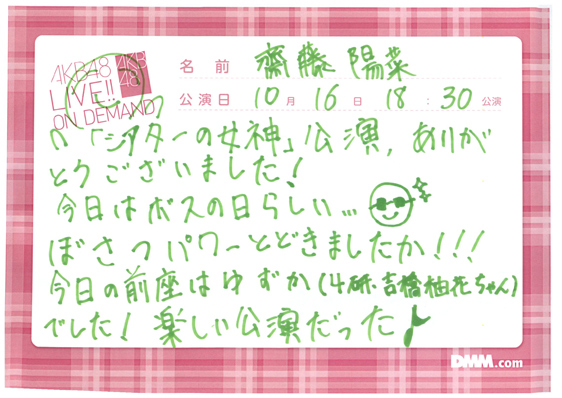 AKB48
LIVE!!
ON DEMAND
AKB
48
名前 齋藤陽菜
公演日 10月16日 18:30公演
「シアターの女神」公演、ありが
とうございました!
今日はボスの日らしい...
ぼさつパワーとどきましたか!!!
今日の前座はゆずか(4研・吉橋柚花ちゃん)
でした! 楽しい公演だった♪
DMM.com